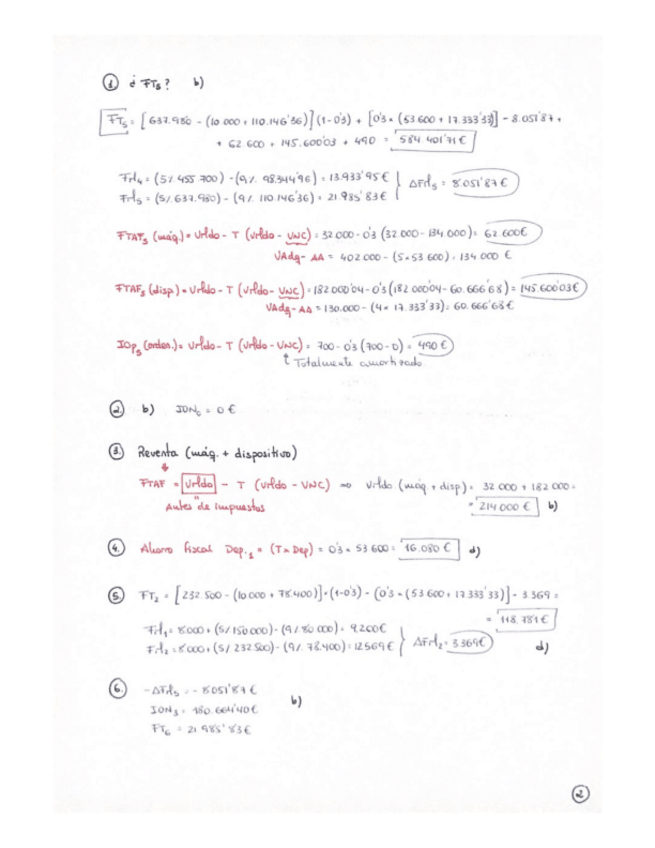 ① ¿ FT₅? b)
FT₅ = [637.980 - (10.000 + 110.146'36)] (1-0'3) + [0'3 × (53.600 + 17.333'33)] - 8.051'87 +
+ 62.600 + 145.600'03 + 490 = 584.401'71€
FM₄ = (5% 455.700) - (9% 98.344'96) = 13.933'95€
FM₅ = (5% 637.980) - (9% 110.146'36) = 21.985'83€
ΔFM₅ = 8.051'87€
FTAF₅ (máq.) = Vrldo - T (Vrldo - VNC) = 32.000 - 0'3 (32.000 - 134.000) = 62.600€
VAdq - AA = 402.000 - (5×53.600) = 134.000 €
FTAF₅ (disp.) = Vrldo - T (Vrldo - VNC) = 182.000'04 - 0'3 (182.000'04 - 60.666'68) = 145.600'03€
VAdq - AA = 130.000 - (4 × 17.333'33) = 60.666'68€
IOp₅ (orden.) = Vrldo - T (Vrldo - VNC) = 700 - 0'3 (700 - 0) = 490€
↑ Totalmente amortizado
② b) ION₀ = 0 €
③ Reventa (máq. + dispositivo)
FTAF = Vrldo - T (Vrldo - VNC) ⇒ Vrldo (máq + disp) = 32.000 + 182.000 =
Antes de impuestos = 214.000€ b)
④ Ahorro fiscal Dep.₁ = (T × Dep) = 0'3 × 53.600 = 16.080 € d)
⑤ FT₂ = [232.500 - (10.000 + 78.400)] × (1-0'3) - (0'3 × (53.600 + 17.333'33)] - 3.369 =
= 118.781€
FM₁ = 8.000 + (5% 150.000) - (9% 80.000) = 9.200€
FM₂ = 8.000 + (5% 232.500) - (9% 78.400) = 12.569€
ΔFM₂ = 3.369€ d)
⑥ -ΔFM₅ = -8.051'87 €
ION₃ = 180.664'40€
FT₆ = 21.985'83€
b)
②